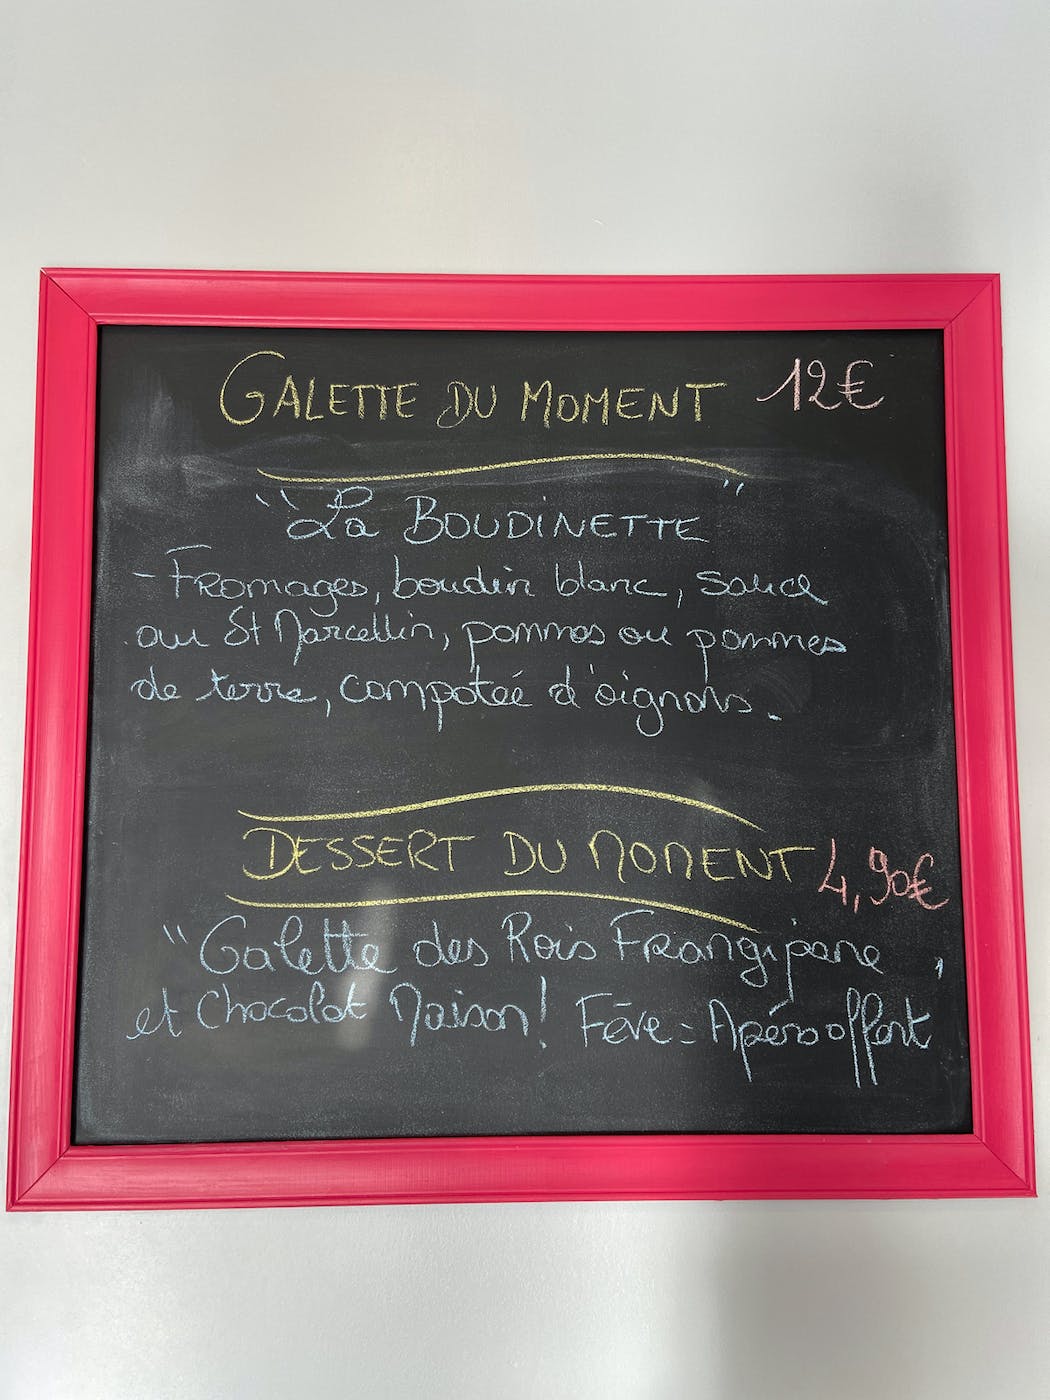 GALETTE DU MOMENT 12€
"La BOUDINETTE"
- Fromages, boudin blanc, sauce
au St Marcellin, pommes ou pommes
de terre, compotée d'oignons.
DESSERT DU MOMENT 4,90€
"Galette des Rois Frangipane
et Chocolat Maison! Fève = Apéro offert